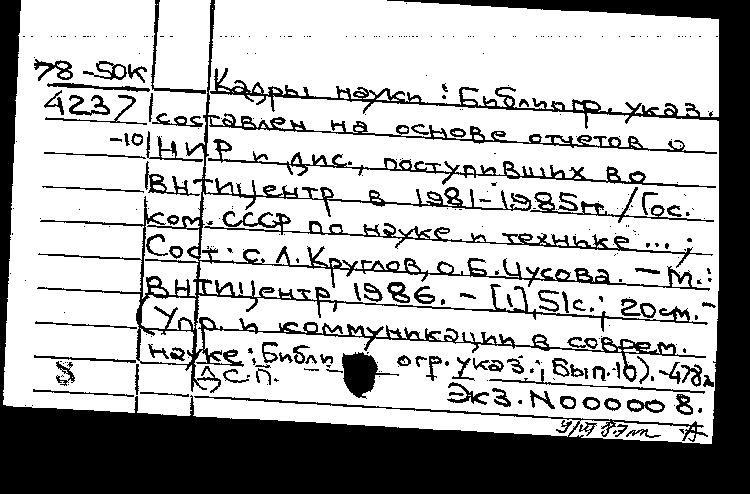 78-50К
4237
-10
Кадры науки : Библиогр. указ.
составлен на основе отчетов о
НИР и дис., поступивших в о
ВНТИЦентр в 1981-1985гг. / Гос.
ком. СССР по науке и технике ... ;
Сост: С. Л. Круглов, О. Б. Чусова. — М. :
ВНТИЦентр, 1986. - [1], 51с. ; 20см. -
(Упр. и коммуникации в соврем.
науке ; Библи огр. указ. ; Вып. 10). -
8
ДСП.
Экз. N000008.